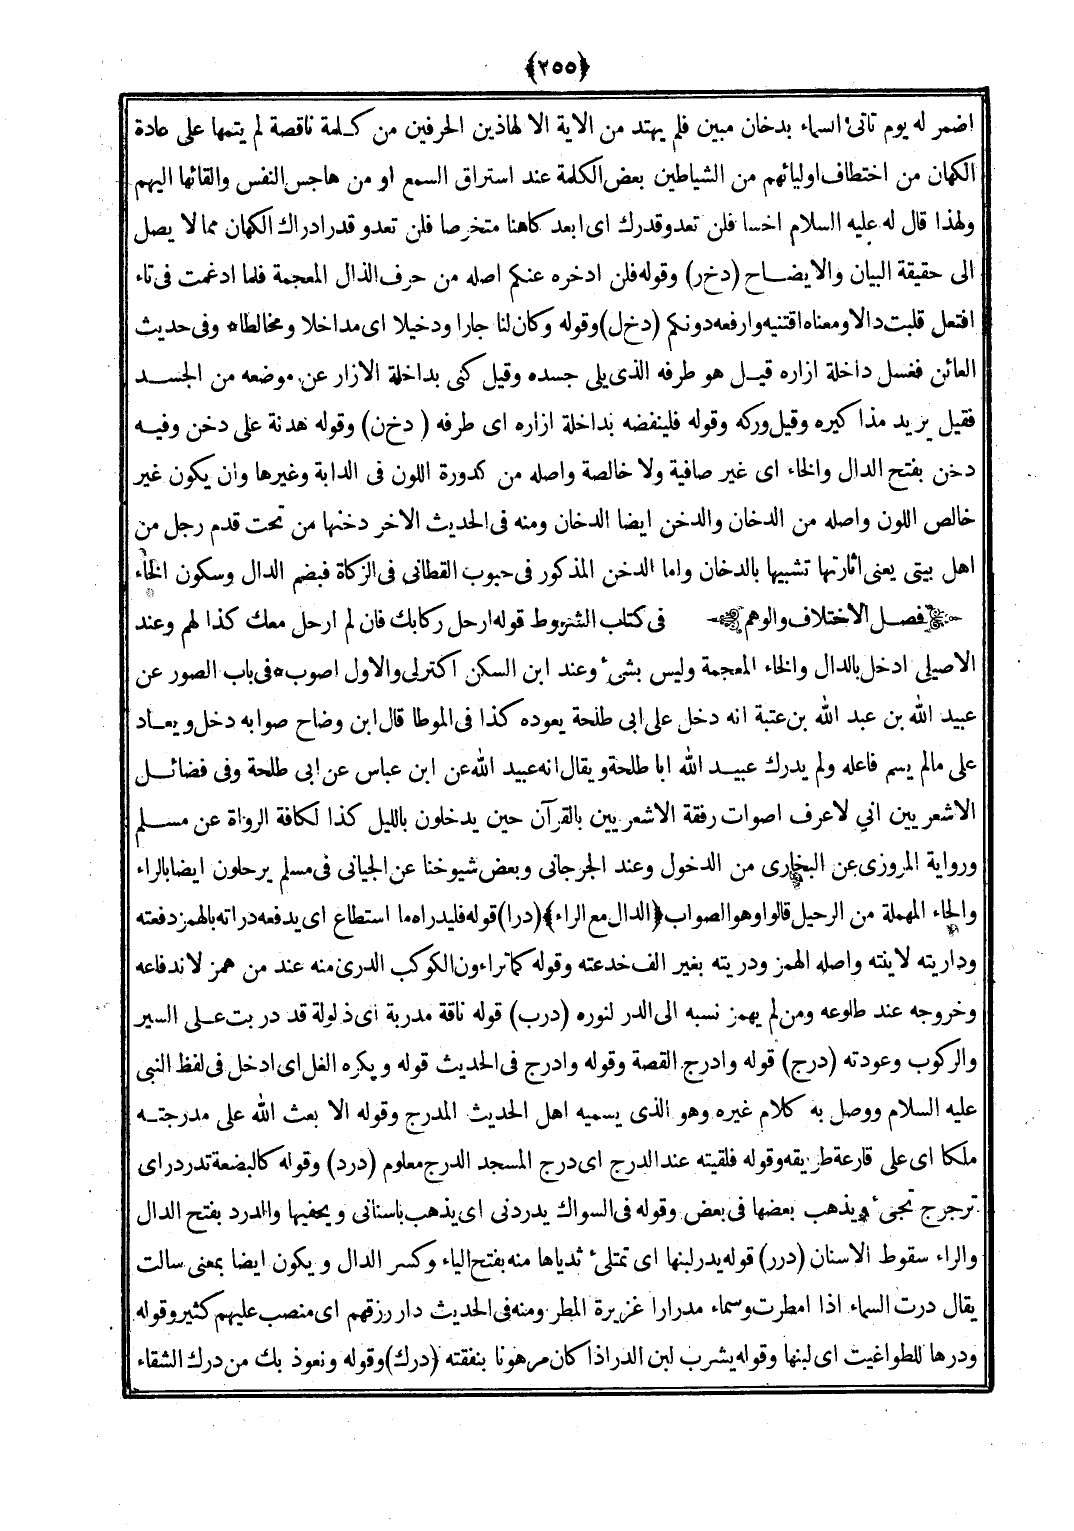 ﴿٢٥٥﴾
اضمر له يوم تاتى السماء بدخان مبين فلم يهتد من الاية الا لهاذين الحرفين من كلمة ناقصة لم يتمها على عادة
الكهان من اختطاف اوليائهم من الشياطين بعض الكلمة عند استراق السمع او من هاجس النفس والقائها اليهم
ولهذا قال له عليه السلام اخسا فلن تعدو قدرك اى ابعد كاهنا متخرصا فلن تعدو قدر ادراك الكهان مما لا يصل
الى حقيقة البيان والايضاح (دخ ر) وقوله فلن ادخره عنكم اصله من حرف الذال المعجمة فلما ادغمت فى تاء
افتعل قلبت دالا ومعناه اقتنيه وارفعه دونكم (دخ ل) وقوله وكان لنا جارا ودخيلا اى مداخلا ومخالطا* وفى حديث
العائن فغسل داخلة ازاره قيل هو طرفه الذى يلى جسده وقيل كنى بداخلة الازار عن موضعه من الجسد
فقيل يريد مذاكيره وقيل وركه وقوله فلينفضه بداخلة ازاره اى طرفه ( دخ ن) وقوله هدنة على دخن وفيه
دخن بفتح الدال والخاء اى غير صافية ولا خالصة واصله من كدورة اللون فى الدابة وغيرها وان يكون غير
خالص اللون واصله من الدخان والدخن ايضا الدخان ومنه فى الحديث الاخر دخنها من تحت قدم رجل من
اهل بيتى يعنى اثارتها تشبيها بالدخان واما الدخن المذكور فى حبوب القطانى فى الزكاة فبضم الدال وسكون الخاء
فصل الاختلاف والوهم فى كتاب الشروط قوله ارحل ركابك فان لم ارحل معك كذا لهم وعند
الاصيلى ادخل بالدال والخاء المعجمة وليس بشىء وعند ابن السكن اكترلى والاول اصوب* فى باب الصور عن
عبيد الله بن عبد الله بن عتبة انه دخل على ابى طلحة يعوده كذا فى الموطا قال ابن وضاح صوابه دخل ويعاد
على مالم يسم فاعله ولم يدرك عبيد الله ابا طلحة ويقال انه عبيد الله عن ابن عباس عن ابى طلحة وفى فضائل
الاشعريين انى لاعرف اصوات رفقة الاشعريين بالقرآن حين يدخلون بالليل كذا لكافة الرواة عن مسلم
ورواية المروزى عن البخارى من الدخول وعند الجرجانى وبعض شيوخنا عن الجيانى فى مسلم يرحلون ايضا بالراء
والحاء المهملة من الرحيل قالوا وهو الصواب ﴿الدال مع الراء﴾ (درا) قوله فليدراه ما استطاع اى يدفعه دراته بالهمز دفعته
وداريته لاينته واصله الهمز ودريته بغير الف خدعته وقوله كما تراءون الكوكب الدرى منه عند من همز لاندفاعه
وخروجه عند طلوعه ومن لم يهمز نسبه الى الدر لنوره (درب) قوله ناقة مدربة اى ذلولة قد دربت على السير
والركوب وعودته (درج) قوله وادرج القصة وقوله وادرج فى الحديث قوله ويكره الغل اى ادخل فى لفظ النبى
عليه السلام ووصل به كلام غيره وهو الذى يسميه اهل الحديث المدرج وقوله الا بعث الله على مدرجته
ملكا اى على قارعة طريقه وقوله فلقيته عند الدرج اى درج المسجد الدرج معلوم (درد) وقوله كالبضعة تدردر اى
ترجرج تجىء ويذهب بعضها فى بعض وقوله فى السواك يدردنى اى يذهب باسنانى ويحفيها والدرد بفتح الدال
والراء سقوط الاسنان (درر) قوله يدر لبنها اى تمتلىء ثدياها منه بفتح الياء وكسر الدال ويكون ايضا بمعنى سالت
يقال درت السماء اذا امطرت وسماء مدرارا غزيرة المطر ومنه فى الحديث دار رزقهم اى منصب عليهم كثير وقوله
ودرها للطواغيت اى لبنها وقوله يشرب لبن الدر اذا كان مرهونا بنفقته (درك) وقوله ونعوذ بك من درك الشقاء